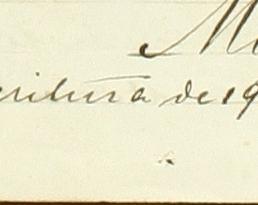 M
eritura de 19